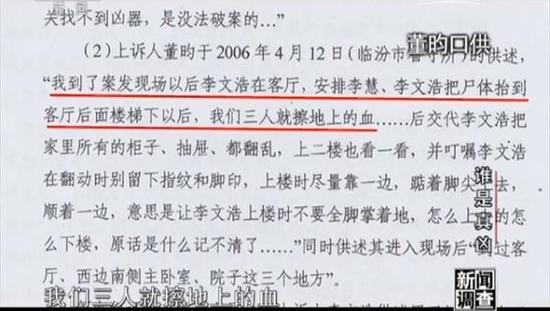 新闻
关找不到凶器，是没法破案的…”
董昀口供
（2）上诉人董昀于 2006 年 4 月 12 日（临汾市看守所）的供述，
“我到了案发现场以后李文浩在客厅，安排李慧、李文浩把尸体抬到
客厅后面楼梯下以后，我们三人就擦地上的血……后交代李文浩把
家里所有的柜子、抽屉、都翻乱，上二楼也看一看，并叮嘱李文浩
在翻动时别留下指纹和脚印，上楼时尽量靠一边，踮着脚尖 去，
顺着一边，意思是让李文浩上楼时不要全脚掌着地，怎么上 的怎
么下楼，原话是什么记不清了……”同时供述其进入现场后“ 过客
厅、西边南侧主卧室、院子这三个地方”。
谁是真凶
新闻
调查
我们三人就擦地上的血